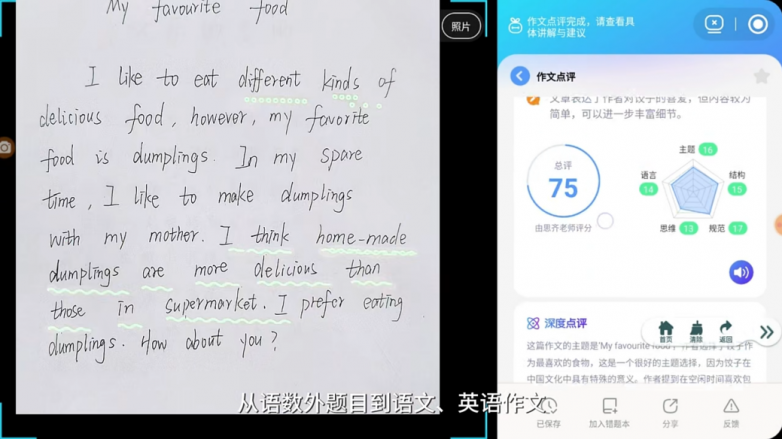 My favourite food
照片
I like to eat different kinds of
delicious food, however, my favorite
food is dumplings. In my spare
time, I like to make dumplings
with my mother. I think home-made
dumplings are more delicious than
those in supermarket. I prefer eating
dumplings. How about you?
作文点评完成，请查看具
体讲解与建议
作文点评
文章表达了作者对饺子的喜爱，但内容较为
简单，可以进一步丰富细节。
总评
75
由思齐老师评分
主题 16
语言 14
结构 15
思维 13
规范 17
深度点评
首页
清除
返回
这篇作文的主题是'My favourite food'，作者选择了饺子作
为最喜欢的食物，这是一个很好的主题选择，因为饺子在
中国文化中具有特殊的意义。作者提到在空闲时间喜欢包
从语数外题目到语文、英语作文
已保存
加入错题本
分享
反馈